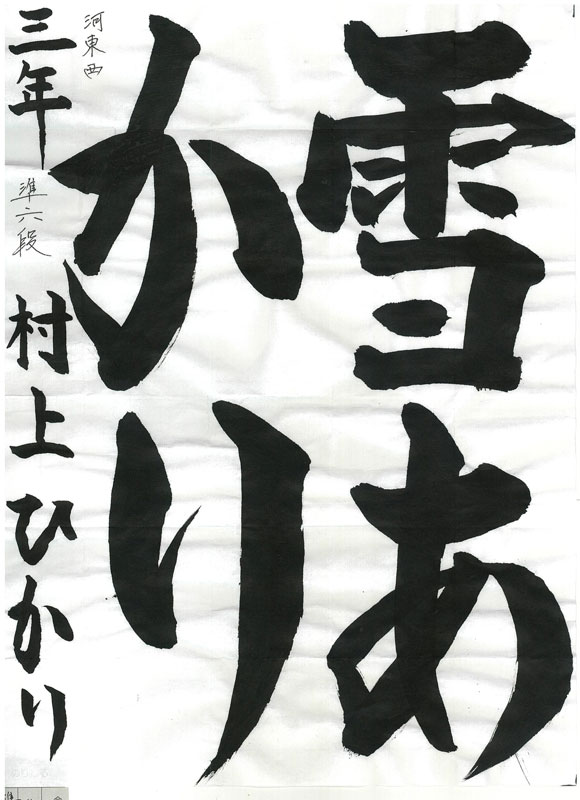 雪あ
かり
河東西
三年 準六段 村上ひかり